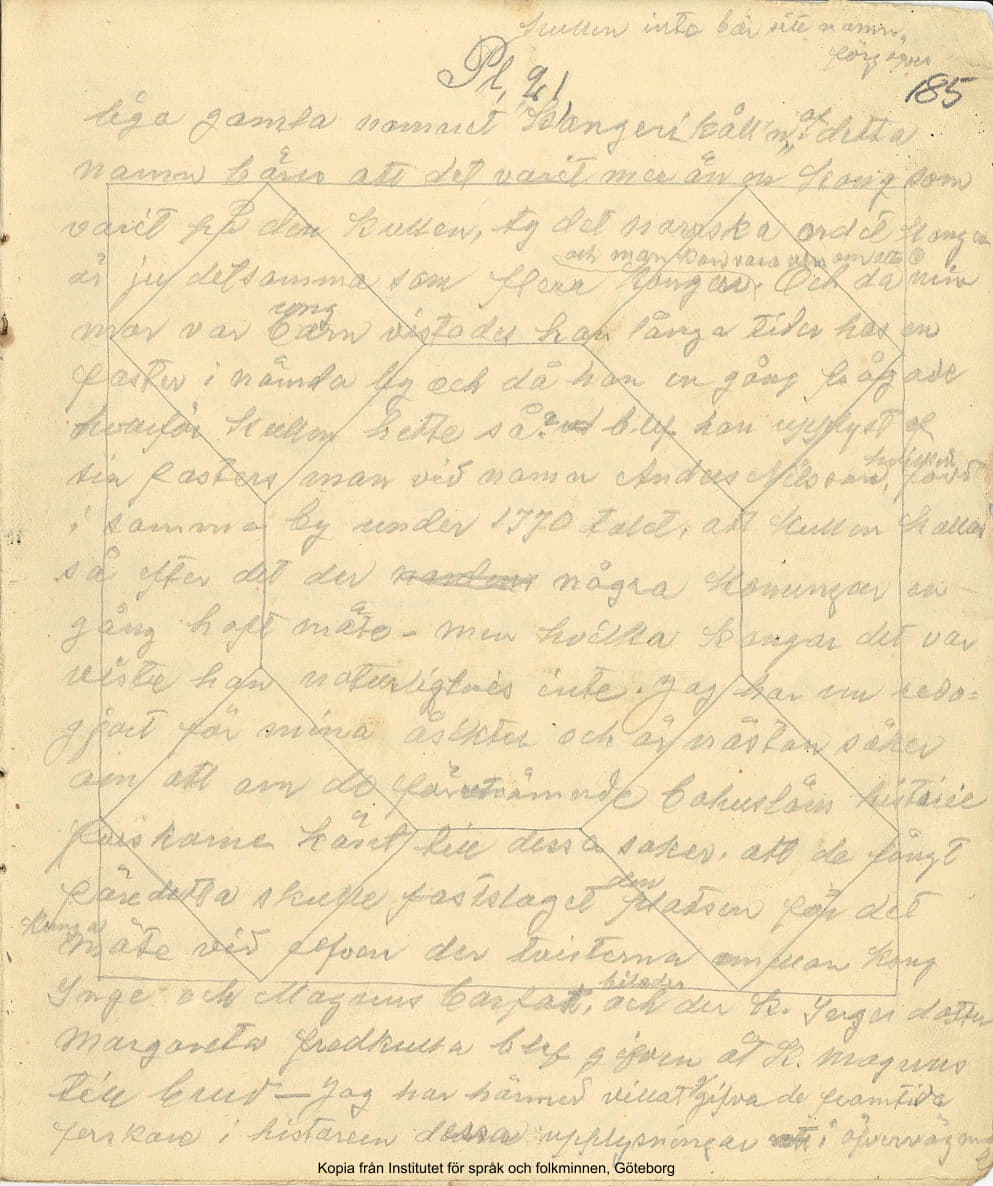 Kullen inte bär sitt namn
förgäfves
Pl. 91
185
liga gamla namnet "Kongerikåll'n" af detta
namn bäres att det varit mer än en Kong som
varit på den Kullen, ty det norska ordet Konger
och man kan vara
är ju detsamma som flera Kongar. Och då min
mor var barn vistades hon långa tider hos en
ung
faster i nämda by och då hon en gång frågade
hvarför Kullen hette så? blef hon upplyst af
sin fasters man vid namn Anders Nilsson, född
hvilken
i samma by under 1770 talet, att Kullen kallas
så efter det der några Konungar en
gång haft möte – men hvilka Kungar det var
viste han naturligtvis inte. Jag har nu redo=
gjort för mina åsikter och är nästan säker
om att om de förutnämnde Bohusläns historie
forskarne känt till dessa saker, att de långt
före detta skulle fastslaget platsen för det
den
Kunga
möte vid elfven der tvisterna emellan Kong
Inge och Magnus Barfot, och der K. Inges dotter
bilades
Margareta fredkulla blef gifven åt K. Magnus
till brud — Jag har härmed villat gifva de framtida
forskare i historien dessa upplysningar i öfvervägande
Kopia från Institutet för språk och folkminnen, Göteborg